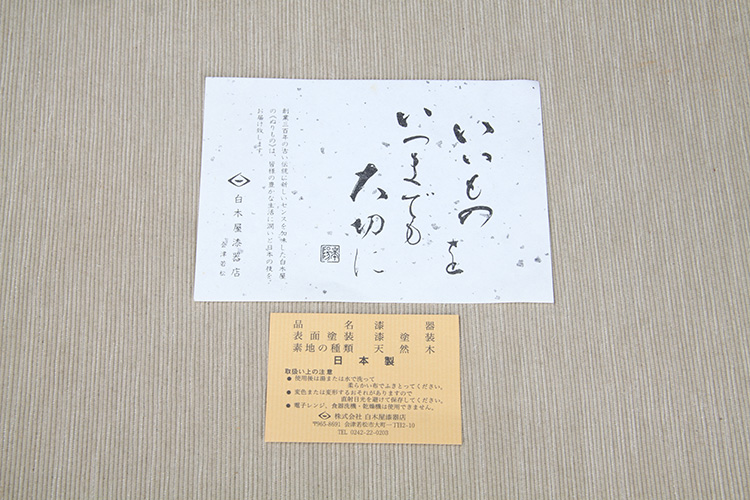 いいものを
いつまでも
大切に
創業三百年の古い伝統に新しいセンスを加味した白木屋
の《ぬりもの》は、皆様の豊かな生活に潤いと日本の技を、
お届け致します。
白木屋漆器店
会津若松
品名 漆器
表面塗装 漆塗装
素地の種類 天然木
日本製
取扱い上の注意
●使用後は湯または水で洗って
柔らかい布でふきとってください。
●変色または変形するおそれがありますので
直射日光を避けて保存してください。
●電子レンジ、食器洗機・乾燥機は使用できません。
株式会社 白木屋漆器店
〒965-8691 会津若松市大町一丁目2-10
TEL 0242-22-0203